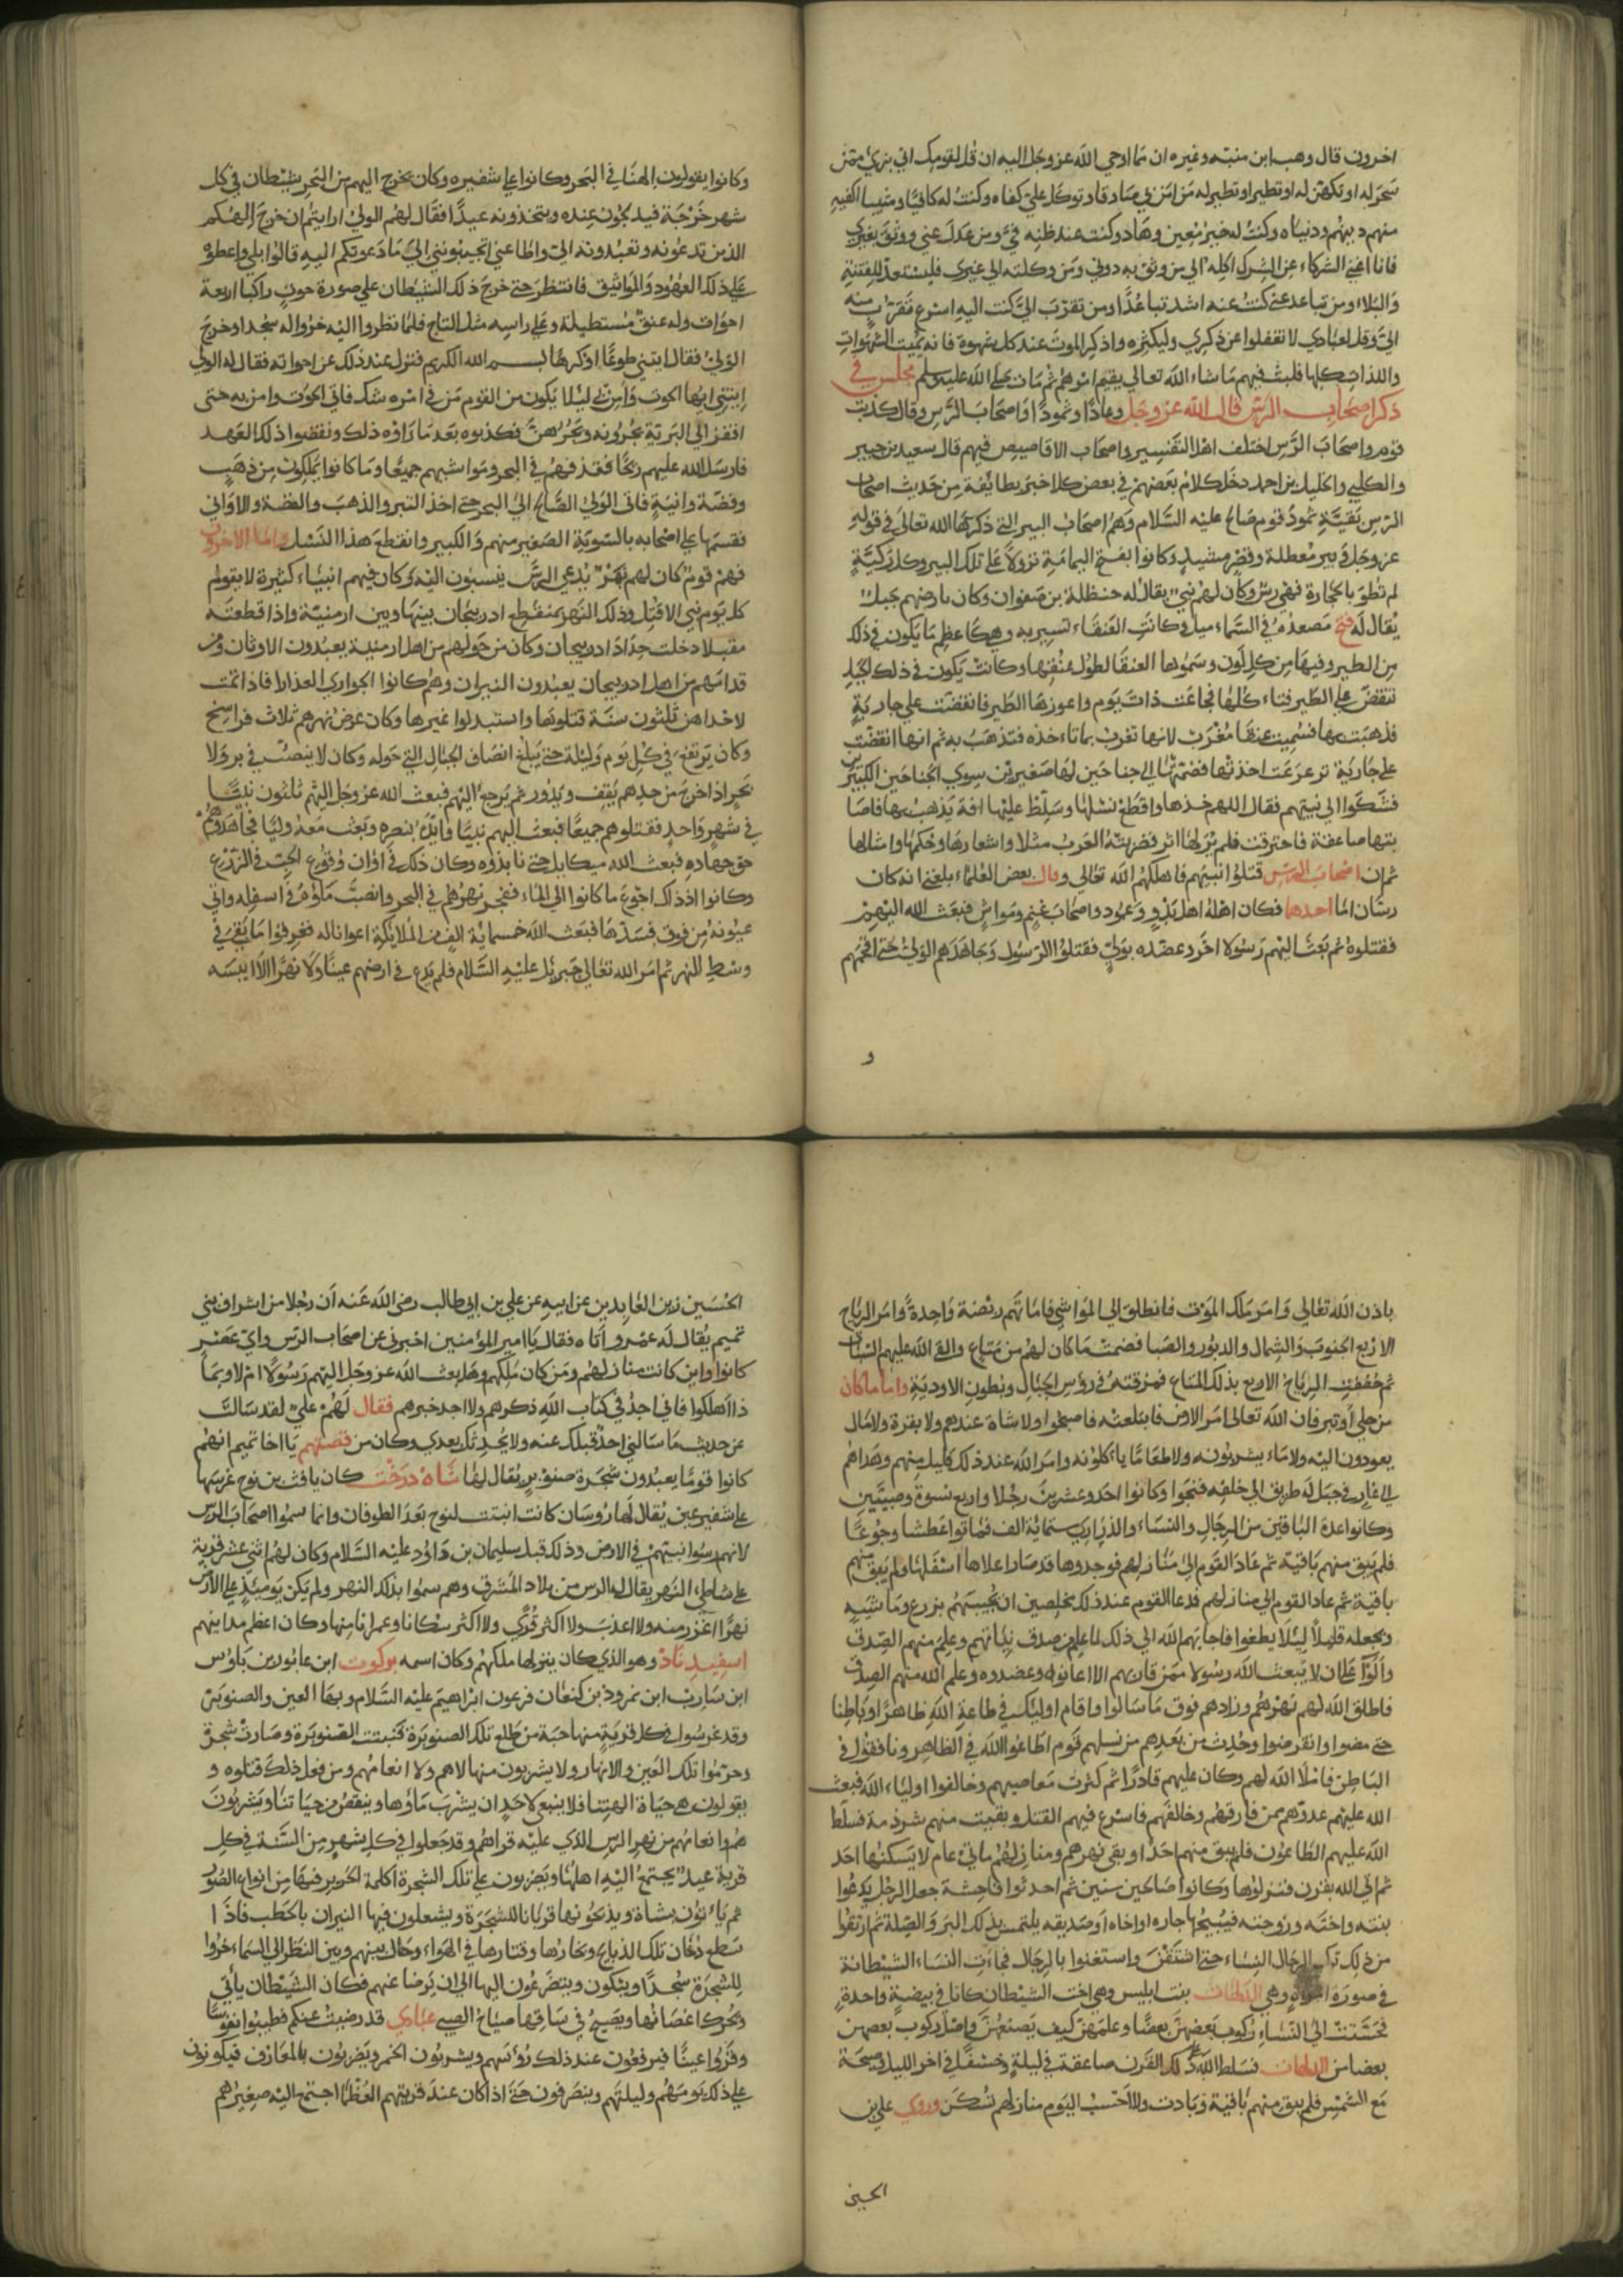 اخرون قال وهب ابن منبه وغيره ان مما اوحي الله عز وجل اليه ان قل لقومك اني بريء ممن
سحر له او تكهن له او تطير او تطير له من امن بي صادقا وتوكل علي كفاه وكنت له كافيا ومثيبا اكفيه
منهم دينهم ودنياه وكنت له خير معين وهاد وكنت عند ظنه في ومن عدل عني ووثق بغيري
فانا اغني الشركاء عن الشرك اكله الي من وثق به دوني ومن وكلته الي غيري فليستعد للفتنة
والبلاء ومن تباعد عني كنت عنه اشد تباعدا ومن تقرب الي كنت اليه اسرع تقرب منه
الي وقل لعبادي لا تغفلوا عن ذكري وليكثره واذكر الموت عند كل شهوة فانه يميت الشهوات
واللذات كلها فلبث فيهم ما شاء الله تعالي يقيم امرهم ثم مات صلي الله عليه وسلم مجلس في
ذكر اصحاب الرس قال الله عز وجل وعادا وثمودا واصحاب الرس وقال كذبت
قوم واصحاب الرس اختلف اهل التفسير واصحاب الاقاصيص فيهم قال سعيد بن جبير
والكلبي والخليل بن احمد دخل كلام بعضهم في بعض كلا خبر بطائفة من حديث اصحاب
الرس بقية ثمود قوم صالح عليه السلام وهم اصحاب البير التي ذكرها الله تعالي في قوله
عز وجل وبير معطلة وقصر مشيد وكانوا بفتح اليمامة نزولا علي تلك البير وكل ركية
لم تطو بالحجارة فهي رس وكان لهم نبي يقال له حنظلة بن صفوان وكان بارضهم جبل
يقال له فتح مصعده في السماء ميل وكانت العنقاء تسير به وهي كاعظم ما يكون في ذلك
من الطير وفيها من كل لون وسموها العنقا لطول عنقها وكانت يكون في ذلك الجبل
تنقض علي الطير فتاء كلها فجاعت ذات يوم واعوزها الطير فانقضت علي جارية
فذهبت بها فسميت عنقا مغرب لانها تغرب بما تاءخذه فتذهب به ثم انها انقضت
علي جارية ترعرعت اخذتها فضمتها الي جناحين لها صغيرين سوي الجناحين الكبيرين
فشكوا الي نبيهم فقال اللهم خذها واقطع نسلها وسلط عليها افة يذهب بها فاصا
بتها صاعقة فاحترقت فلم ير لها اثر فضربته العرب مثلا واشعارها وحكمها وامثالها
ثم ان اصحاب الرس قتلوا نبيهم فاهلكهم الله تعالي وقال بعض العلماء بلغني انه كان
رسان اما احدهما فكان اهله اهل بذو وعمود واصحاب غنم ومواش فبعث الله اليهم
فقتلوه ثم بعث اليهم رسولا اخر وعضده بولي فقتلوا الرسول وجاهدهم الولي حتي افحمهم
و
وكانوا يقولون الهنا في البحر وكانوا علي شفيره وكان يخرج اليهم من البحر شيطان في كل
شهر خرجة فيذبحون عنده ويتخذونه عيدا فقال لهم الولي ارايتم ان خرج الهكم
الذين تدعونه وتعبدونه الي واطاعني اتجيبونني الي ما دعوتكم اليه قالوا بلي واعطوه
علي ذلك العهود والمواثيق فانتظر حتي خرج ذلك الشيطان علي صورة حوت راكبا اربعة
احوات وله عنق مستطيلة وعلي راسه مثل التاج فلما نظروا اليه خروا له سجدا وخرج
الولي فقال ايتني طوعا او كرها بسم الله الكريم فنزل عند ذلك عن احواته فقال له الولي
ايتني ايها الحوت وامن ليلا يكون من القوم من في امره شك فاتي الحوت وامن به حتي
افقز الي البرية يجرونه ويجرهن فكذبوه بعد ما راوه ذلك ونقضوا ذلك العهد
فارسل الله عليهم ريحا فقذفهم في البحر ومواشيهم جميعا وما كانوا يملكون من ذهب
وفضة وانية فاتي الولي الصالح الي البحر حتي اخذ التبر والذهب والفضة والاواني
فقسمها علي اصحابه بالسوية الصغير منهم والكبير وانقطع هذا النسل واما الاخرون
فهم قوم كان لهم نهر يدعي الرس ينسبون اليه وكان فيهم انبياء كثيرة لا يقوم
كل يوم نبي الا قتل وذلك النهر بمنقطع ادربيجان بينها وبين ارمنية واذا قطعته
مقبلا دخلت حد ادربيجان وكان من حولهم من اهل ارمنية يعبدون الاوثان ومن
قدامهم من اهل ادربيجان يعبدون النيران وهم كانوا الجواري العذارا فاذا تمت
لاحداهن ثلثون سنة قتلوها واستبدلوا غيرها وكان عرض نهرهم ثلاث فراسخ
وكان يرتفع في كل يوم وليلة حتي يبلغ انصاف الجبال التي حوله وكان لا ينصب في بر ولا
بحر اذا خرج من حدهم يقف ويدور ثم يرجع اليهم فبعث الله عز وجل اليهم ثلثون نبيا
في شهر واحد فقتلوهم جميعا فبعث اليهم نبيا وايده بنصره وبعث معه وليا فجاهدهم
حق جهاده فبعث الله ميكايل حتي نابذوه وكان ذلك في اوان وقوع الحب في الزرع
وكانوا اذ ذاك احوج ما كانوا الي الماء ففجر نهرهم في البحر وانصب ماؤه في اسفله واتي
عيونه من فوق فسدها فبعث الله خمسماية الف من الملائكة اعوانا له فغرقوا ما بقي في
وسط النهر ثم امر الله تعالي جبريل عليه السلام فلم يدع في ارضهم عينا ولا نهرا الا ايبسه
باذن الله تعالي وامر ملك الموت فانطلق الي المواشي فاماتهم ربضة واحدة وامر الرياح
الاربع الجنوب والشمال والدبور والصبا فضمت ما كان لهم من متاع والقي الله عليهم السبات
ثم خفقت الرياح الاربع بذلك المتاع فمزقته في رؤس الجبال وبطون الاودية واما ما كان
من حلي او تبر فان الله تعالي امر الارض فابتلعته فاصبحوا ولا شاة عندهم ولا بقرة ولا مال
يعودون اليه ولا ماء يشربونه ولا طعاما ياءكلونه وامن الله عند ذلك قليل منهم وهداهم
الي غار في جبل له طريق الي خلفه فنجوا وكانوا احد وعشرين رجلا واربع نسوة وصبيين
وكانوا عدة الباقين من الرجال والنساء والذراري ستماية الف فماتوا عطشا وجوعا
فلم يبق منهم باقية ثم عاد القوم الي منازلهم فوجدوها قد صار اعلاها اسفلها ولم يبق منهم
باقية ثم عاد القوم الي منازلهم فدعا القوم عند ذلك مخلصين ان يجيبهم بزرع وماشية
ويجعله قليلا ليلا يطغوا فاجابهم الله الي ذلك لما علم من صدق نياتهم وعلم منهم الصدق
والوا علي ان لا يبعث الله رسولا ممن قاربهم الا اعانوه وعضدوه وعلم الله منهم الصدق
فاطلق الله لهم نهرهم وزادهم فوق ما سالوا واقام اوليك في طاعة الله ظاهرا وباطنا
حتي مضوا وانقرضوا وحدث من بعدهم من نسلهم قوم اطاعوا الله في الظاهر ونافقوا في
الباطن فاملا الله لهم وكان عليهم قادرا ثم كثرت معاصيهم وخالفوا اولياء الله فبعث
الله عليهم عدوهم ممن فارقهم وخالفهم فاسرع فيهم القتل وبقيت منهم شرذمة فسلط
الله عليهم الطاعون فلم يبق منهم احدا وبقي نهرهم ومنازلهم مايتي عام لا يسكنها احد
ثم اتي الله بقرن فنزلوها وكانوا صالحين سنين ثم احدثوا فاحشة جعل الرجل يدعوا
بنته واخته وزوجته فيبيحها جاره او اخاه او صديقه يلتمس بذلك البر والصلة ثم ارتقوا
من ذلك ترك الرجال النساء حتي اشتقن واستغنوا بالرجال فجاءت النساء الشيطانة
في صورة امراة وهي الدلهات بنت ابليس وهي اخت الشيطان كانا في بيضة واحدة
فحسنت الي النساء ركوب بعضهن بعضا وعلمهن كيف يصنعن واصل ركوب بعضهن
بعضا من الدلهات فسلط الله علي ذلك القرن صاعقة في ليلة وخسفا في اخر الليل وصيحة
مع الشمس فلم يبق منهم باقية وبادت ولا احسب اليوم منازلهم تسكن وروي علي بن
الحسين
الحسين زين العابدين عن ابيه عن علي بن ابي طالب رضي الله عنه ان رجلا من اشراف بني
تميم يقال له عمرو اتاه فقال يا امير المؤمنين اخبرني عن اصحاب الرس واي عصر
كانوا واين كانت منازلهم ومن كان ملكهم وهل بعث الله عز وجل اليهم رسولا ام لا وبما
ذا اهلكوا فاني اجد في كتاب الله ذكرهم ولا اجد خبرهم فقال لهم علي لقد سالت
عن حديث ما سالني احد قبلك عنه ولا يحدثك بعدي وكان من قصتهم يا اخا تميم انهم
كانوا قوما يعبدون شجرة صنوبر يقال لها شاه درخت كان يافث بن نوح غرسها
علي شفير عين يقال لها روسان كانت انبتت لنوح بعد الطوفان وانما سموا اصحاب الرس
لانهم رسوا نبيهم في الارض وذلك قبل سليمان بن داود عليه السلام وكان لهم اثني عشر قرية
علي شاطي النهر يقال له الرس من بلاد المشرق وهم سموا بذلك النهر ولم يكن يومئذ علي الارض
نهرا اغزر منه ولا اعذب ولا اكثر قري ولا اكثر سكانا وعمرانا منها وكان اعظم مداينهم
اسفيد ناد وهو الذي كان ينزلها ملكهم وكان اسمه بركوت ابن عابولا بن باوس
ابن سارب ابن نمروذ بن كنعان فرعون ابراهيم عليه السلام وبها العين والصنوبرة
وقد غرسوا في كل قرية منها حبة من طلع تلك الصنوبرة فنبتت الصنوبرة وصارت شجرة
وحرموا تلك العين والانهار ولا يشربون منها لا هم ولا انعامهم ومن فعل ذلك قتلوه و
يقولون هي حياة الهتنا فلا ينبغي لاحد ان يشرب ماؤها وينقص من حياتنا ويشربون
هم وانعامهم من نهر الرس الذي عليه قراهم وقد جعلوا في كل شهر من السنة في كل
قرية عيد يجتمع اليه اهلها ويضربون علي تلك الشجرة اكلة الحرير فيها من انواع الصور
ثم ياءتون بشاة ويذبحونها قربانا للشجرة ويشعلون فيها النيران بالحطب فاذا
سطع دخان تلك الذبايح وبخارها وقتارها في الهواء وحال بينهم وبين النظر الي السماء خروا
للشجرة سجدا ويبكون ويتضرعون اليها الي ان يرضا عنهم فكان الشيطان ياتي
ويحرك اغصانها ويصيح في ساقها صياح الصبي عبادي قد رضيت عنكم فطيبوا نفوسا
وقروا عينا فيرفعون عند ذلك رؤسهم ويشربون الخمر ويضربون بالمعازف فيكونون
علي ذلك يومهم وليلتهم وينصرفون حتي اذا كان عند قريتهم العظما اجتمع اليه صغيرهم